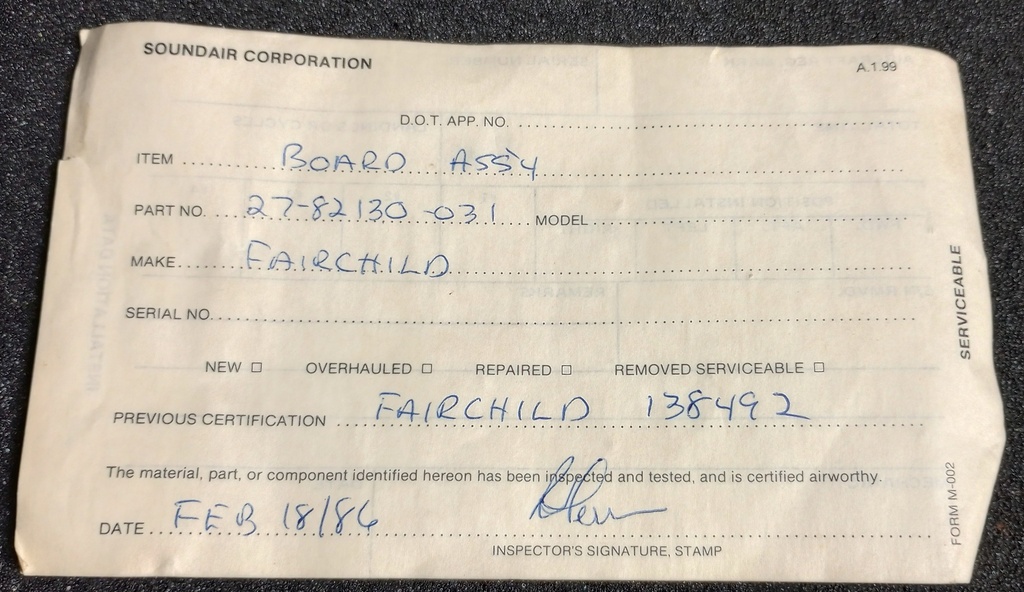 SOUNDAIR CORPORATION A.1.99
D.O.T. APP. NO.
ITEM BOARD ASS'Y
PART NO. 27-82130-031 MODEL
MAKE FAIRCHILD
SERIAL NO.
NEW □ OVERHAULED □ REPAIRED □ REMOVED SERVICEABLE □
PREVIOUS CERTIFICATION FAIRCHILD 138492
The material, part, or component identified hereon has been inspected and tested, and is certified airworthy.
DATE FEB 18/86
INSPECTOR'S SIGNATURE, STAMP
SERVICEABLE
FORM M-002